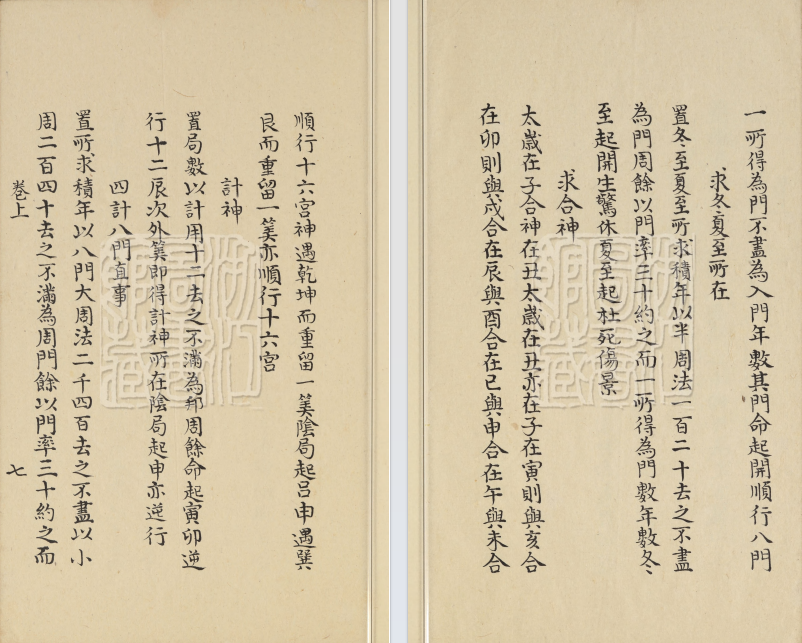 順行十六宮神遇乾坤而重留一筭陰局起呂申遇巽
艮而重留一筭亦順行十六宮
計神
置局數以計用十二去之不滿為邦周餘命起寅卯逆
行十二辰次外筭即得計神所在陰局起申亦逆行
四計八門直事
置所求積年以八門大周法二千四百去之不盡以小
周二百四十去之不滿為周門餘以門率三十約之而
卷上 七
一所得為門不盡為入門年數其門命起開順行八門
求冬夏至所在
置冬至夏至所求積年以半周法一百二十去之不盡
為門周餘以門率三十約之而一所得為門數年數冬
至起開生驚休夏至起杜死傷景
求合神
太歲在子合神在丑太歲在丑亦在子在寅則與亥合
在卯則與戌合在辰與酉合在巳與申合在午與未合